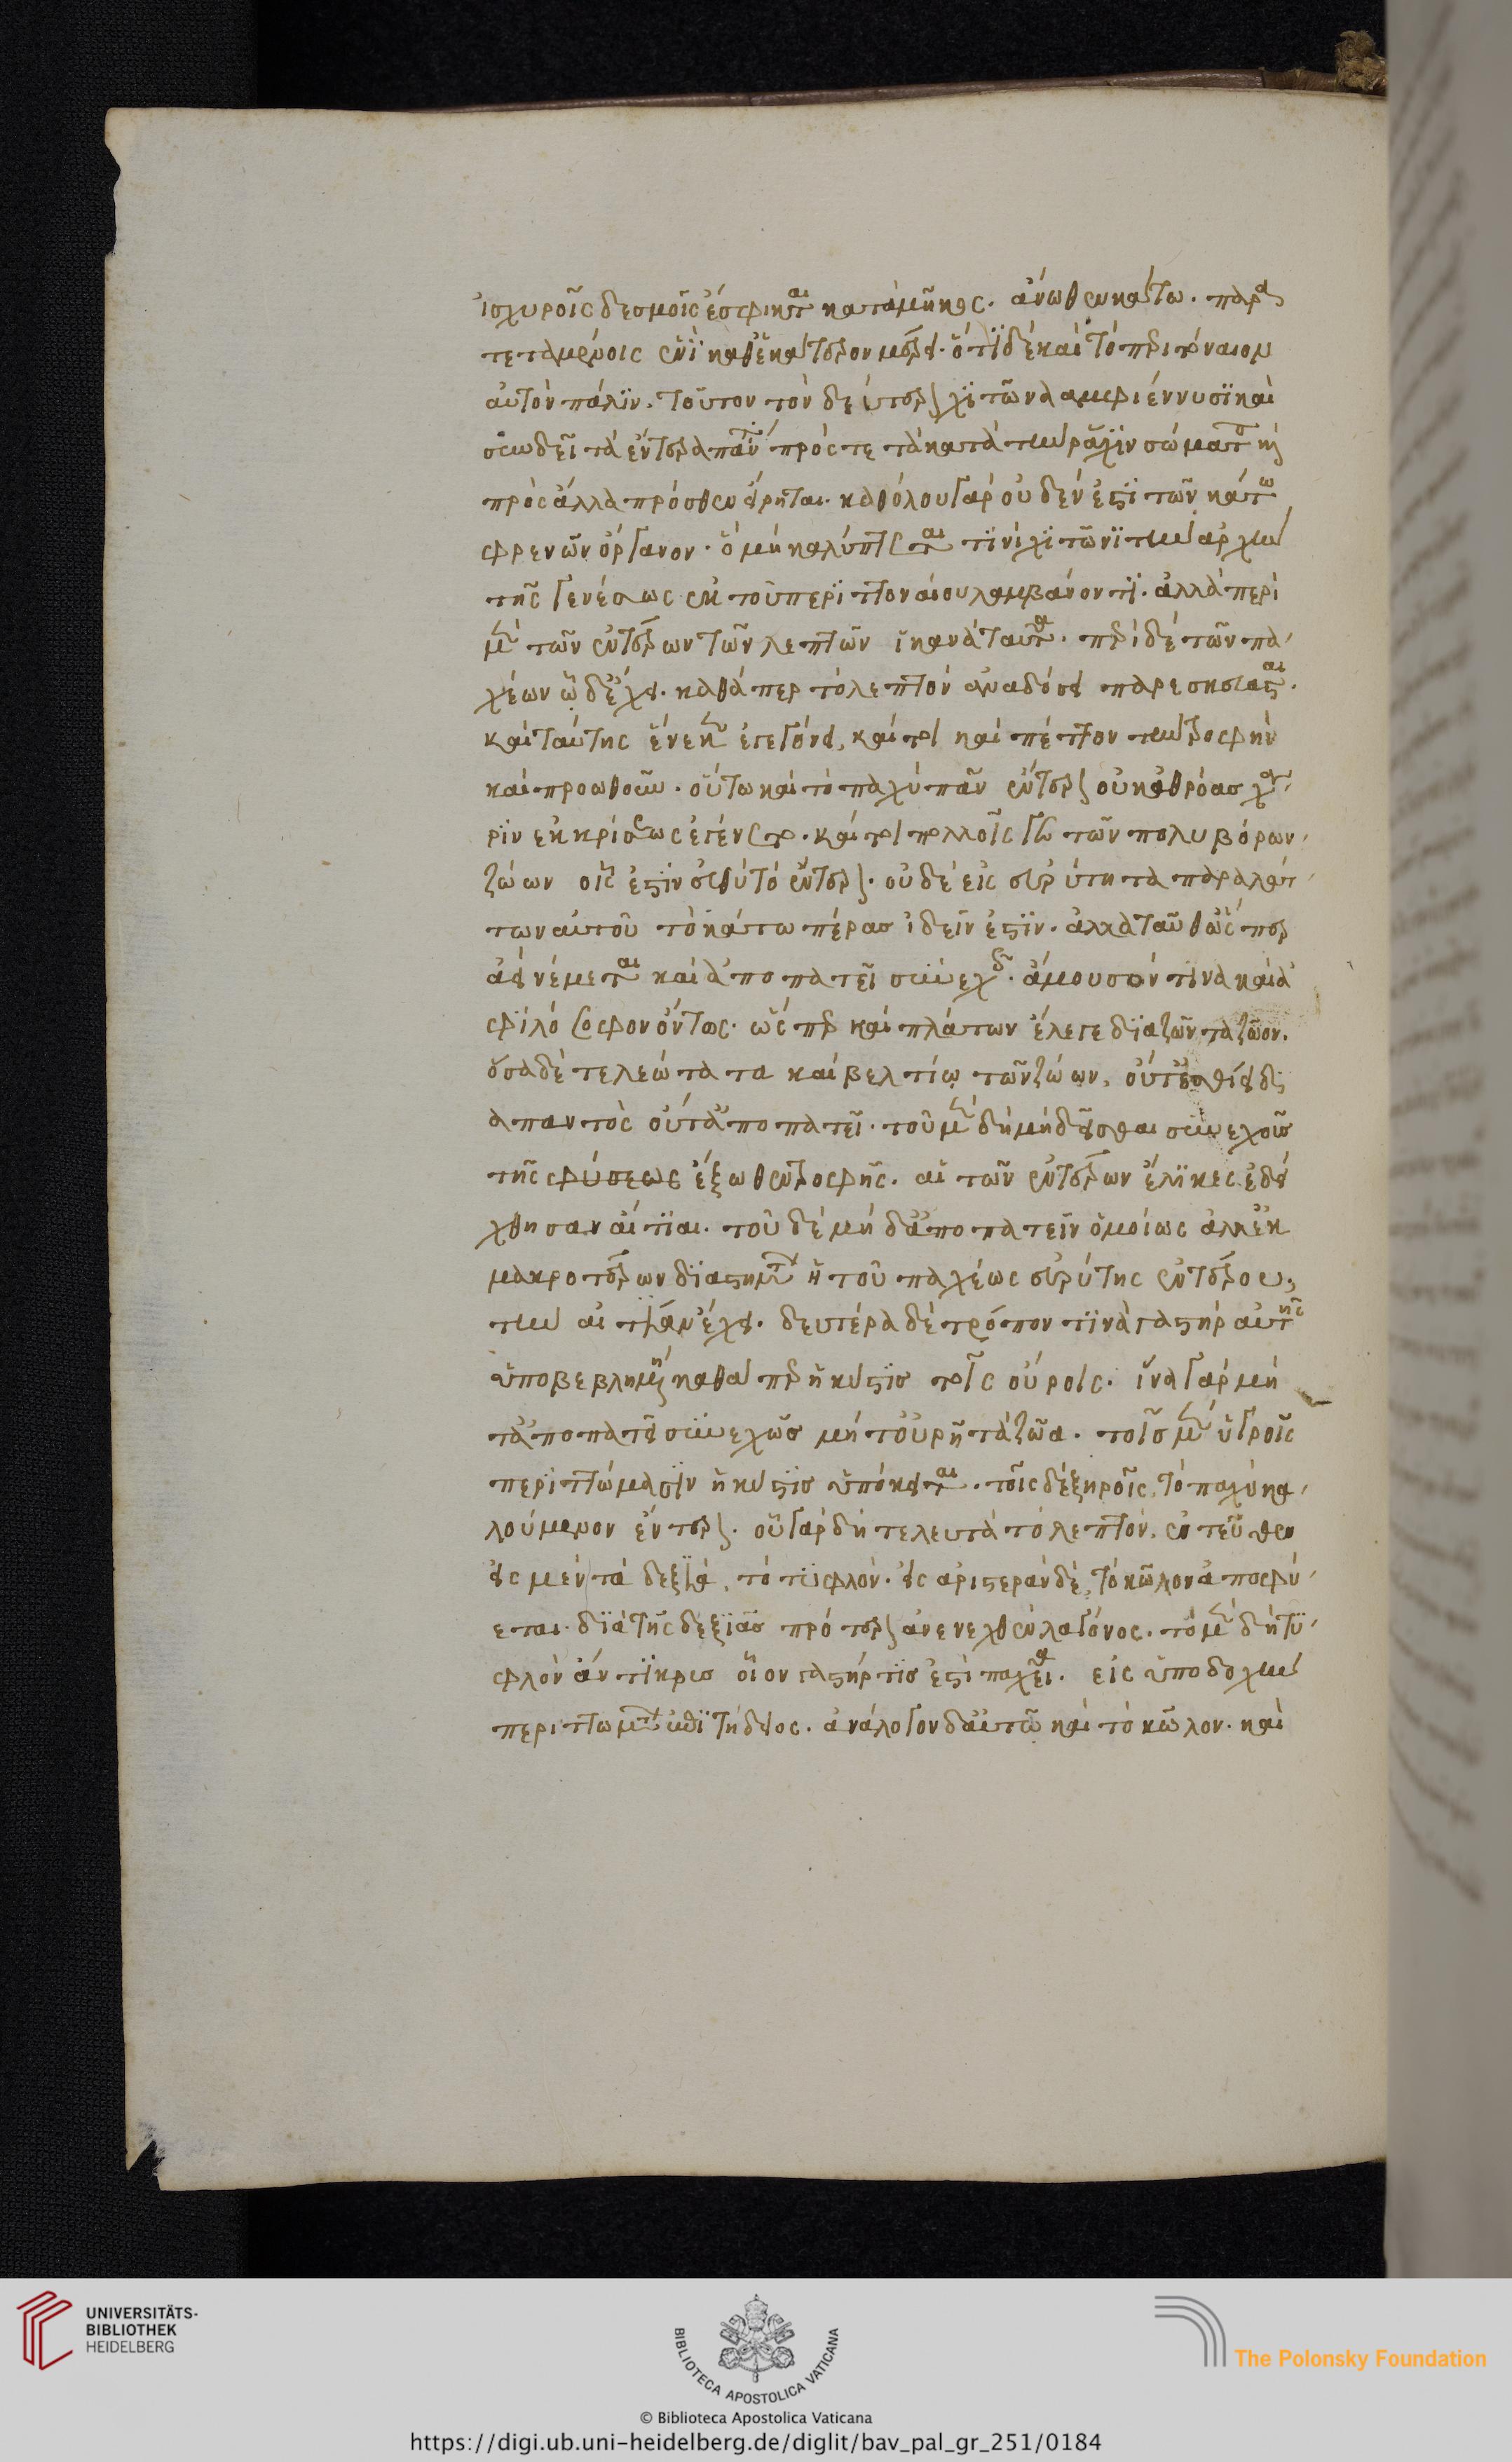 ἰσχυροῖς δεσμοῖς ἔσφιγκται κατὰ μῆκος. ἄνωθεν κάτω. παρα
τεταμένοις ἑνὶ καθ' ἑκάτερον μέρει. ὅτι δὲ καὶ τὸ περιτόναιον
αὐτὸν πάλιν. τοῦτον τὸν δεύτερον χιτῶνα ἀμφιέννυσι καὶ
συνδεῖ τὰ ἔντερα πάντη πρός τε τὰ κατὰ τὴν ῥάχιν σώματα καὶ
πρὸς ἄλλα πρόσθεν εἴρηται. καθόλου γὰρ οὐδέν ἐστι τῶν κάτω
φρενῶν ὄργανον. ὃ μὴ καλύπτεται τινὶ χιτῶνι τὴν ἀρχὴν
τῆς γενέσεως ἐκ τοῦ περιττοναίου λαμβάνοντι. ἀλλὰ περὶ
μὲν τῶν ἐντέρων τῶν λεπτῶν ἱκανὰ ταῦτα. περὶ δὲ τῶν πα
χέων ὧδ' ἔχει. καθάπερ τὸ λεπτὸν ἀναδόσει παρεσκεύασται.
καὶ ταύτης ἕνεκα ἐγεγόνει, καίτοι καὶ πέττον τὴν τροφὴν
καὶ προωθοῦν. οὕτω καὶ τὸ παχὺ πᾶν ἔντερον οὐκ ἀθρόας χά
ριν ἐκκρίσεως ἐγένετο. καίτοι πολλοῖς γε τῶν πολυβόρων
ζώων οἷς ἐστὶν εὐθὺ τὸ ἔντερον. οὐδὲ εἰς εὐρύτητα παραλάτ
των αὐτοῦ τὸ κάτω πέρας ἰδεῖν ἐστίν. ἀλλὰ ταῦθ' ὥσπερ
ἀεὶ νέμεται καὶ ἀποπατεῖ συνεχῶς. ἄμουσόν τινα καὶ ἀ
φιλόσοφον ὄντως. ὥσπερ καὶ πλάτων ἔλεγε διαζῶντα ζῶον.
ὅσα δὲ τελεώτατα καὶ βελτίω τῶν ζώων, οὔτ' ἐσθίει δι
απαντὸς οὔτ' ἀποπατεῖ. τοῦ μὲν δὴ μὴ δεῖσθαι συνεχοῦς
τῆς φύσεως ἔξωθεν τροφῆς. αἱ τῶν ἐντέρων ἕλικες ἐδεί
χθησαν αἴτιαι. τοῦ δὲ μὴ δ' ἀποπατεῖν ὁμοίως ἀλλ' ἐκ
μακροτέρων διαστημάτων ἡ τοῦ παχέως εὐρύτης ἐντέρου,
τὴν αἰτίαν ἔχει. δευτέρα δὲ τρόπον τινὰ γαστὴρ αὐτῆς
ὑποβεβλημένη καθάπερ ἡ κύστις τοῖς οὔροις. ἵνα γὰρ μὴ
τ' ἀποπατεῖ συνεχῶς μήτ' οὐρῆ τὰ ζῶα. τοῖς μὲν ὑγροῖς
περιττώμασιν ἡ κύστις ὑπόκειται. τοῖς δὲ ξηροῖς, τὸ παχὺ κα
λούμενον ἔντερον. οὗ γὰρ δὴ τελευτᾶ τὸ λεπτόν, ἐντεῦθεν
εἰς μὲν τὰ δεξιά, τὸ τυφλόν. εἰς ἀριστερὰν δὲ, τὸ κῶλον ἀποφύ
εται. διὰ τῆς δεξιᾶς πρότερον ἀνενεχθὲν λαγόνος. τὸ μὲν δὴ τυ
φλὸν ἄντικρυς οἷον γαστήρ τις ἐστὶ παχεῖα. εἰς ὑποδοχὴν
περιττωμάτων ἐπιτήδειος. ἀνάλογον δ' αὐτῶ καὶ τὸ κῶλον. καὶ
UNIVERSITÄTS-
BIBLIOTHEK
HEIDELBERG
BIBLIOTECA APOSTOLICA VATICANA
The Polonsky Foundation
© Biblioteca Apostolica Vaticana
https://digi.ub.uni-heidelberg.de/diglit/bav_pal_gr_251/0184